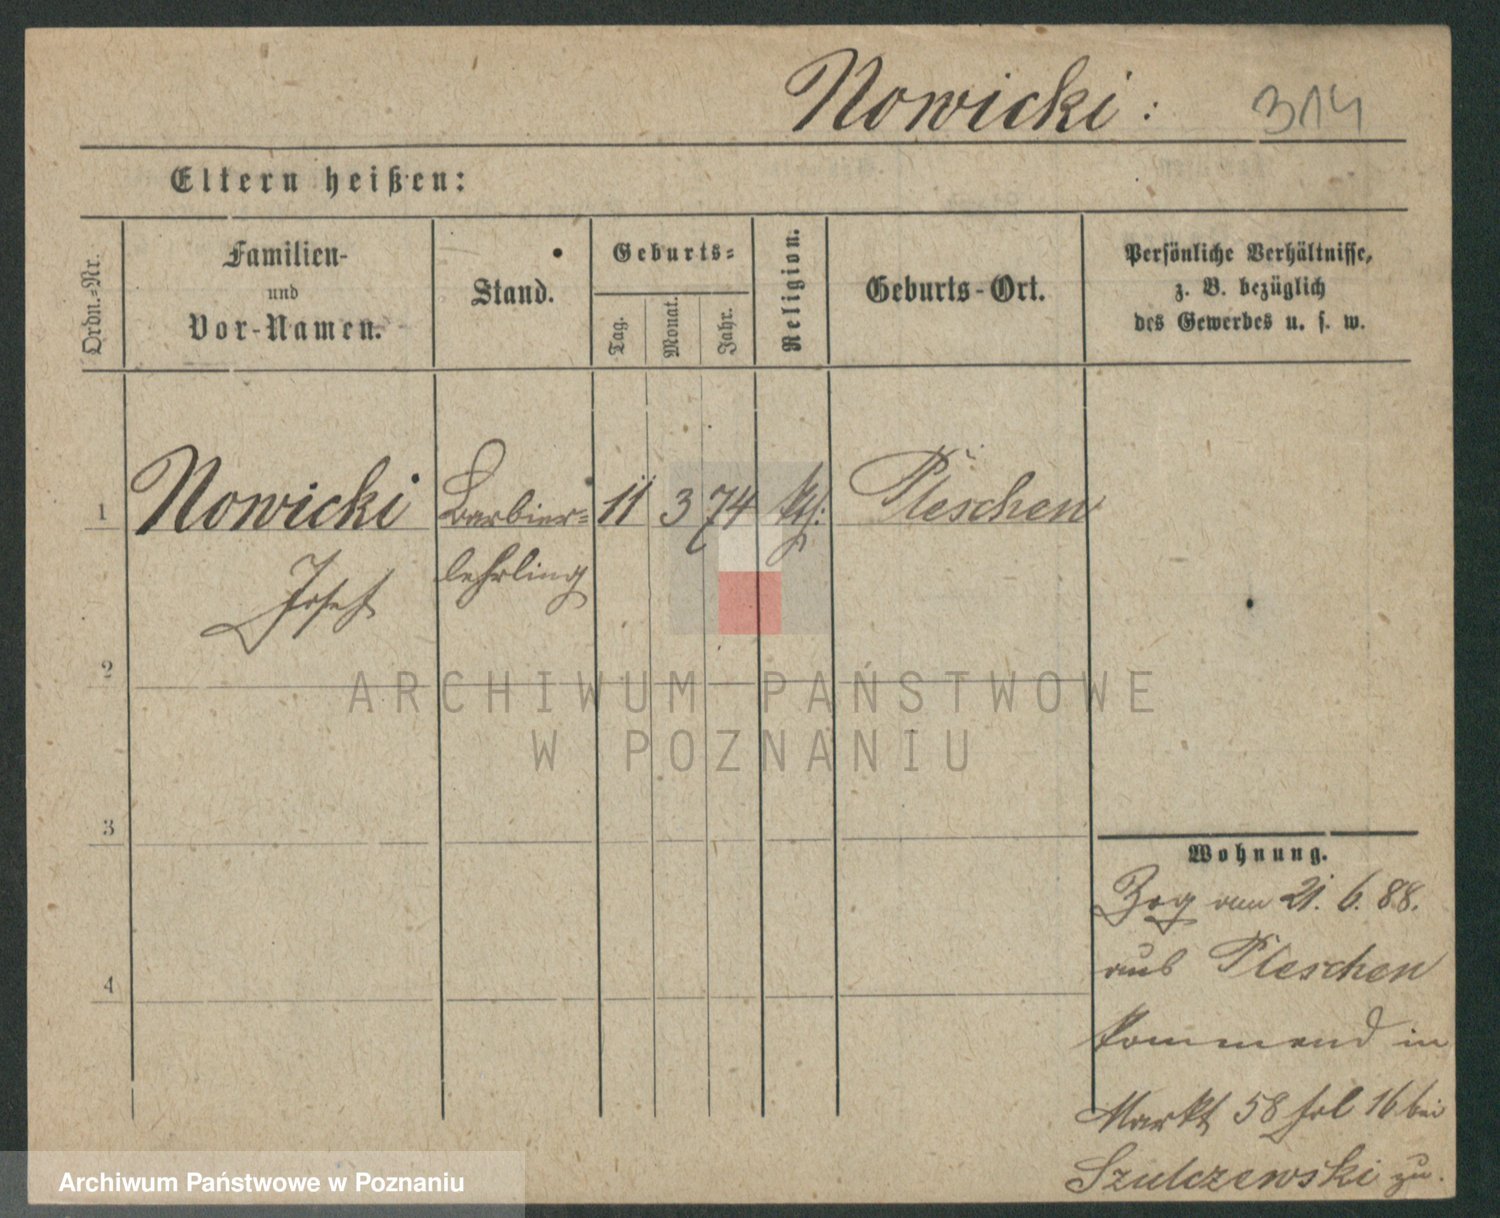 Nowicki: 314
Eltern heißen:
Ordn.-Nr.
Familien-
und
Vor-Namen.
Stand.
Geburts-
Tag.
Monat.
Jahr.
Religion.
Geburts-Ort.
Persönliche Verhältnisse,
z. B. bezüglich
des Gewerbes u. s. w.
1 Nowicki Barbier= 11 3 74 kth: Pleschen
Josef lehrling
2
ARCHIWUM PAŃSTWOWE
W POZNANIU
3
4
Wohnung.
Zog am 21. 6. 88.
aus Pleschen
kommend in
Markt 58 fol 16 bei
Szulczewski zu.
Archiwum Państwowe w Poznaniu